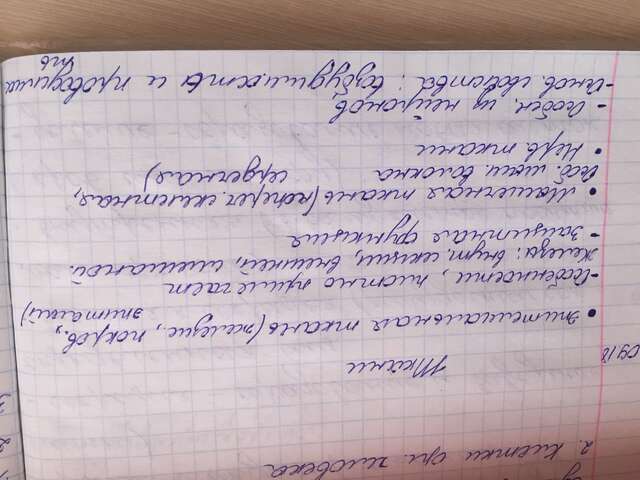 2. Клетки орг. человека
09/18
Ткани
• Эпителиальная ткань (железис., покров.,
эпиталий)
- Особенности, плотно прилегает
Железы: внут. секции, внешней, смешаной.
- Защитная функция
• Мышечная ткань (попереч. скелетная,
сердечная)
Особ. мыш. волокна
• Нерв. ткани
- Особен. из нейронов
- Основ. свойства: возбудимость и проводимо
ть